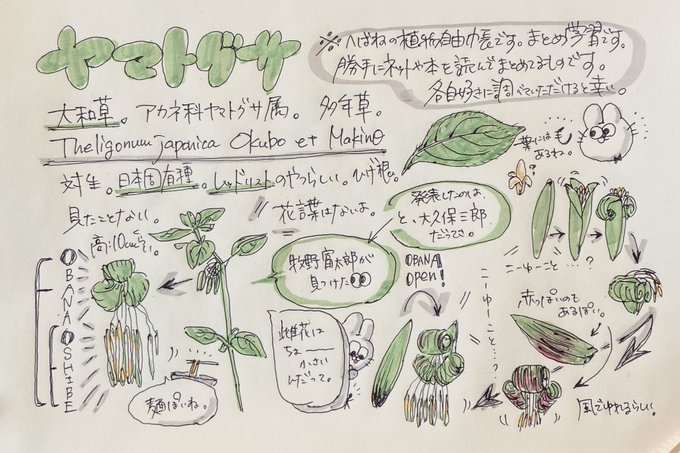 ヤマトグサ
※へばねの植物自由帳です。まとめ学習です。
勝手にネットや本を読んでまとめてるものです。
各自好きに調べていただけると幸い。
大和草。アカネ科ヤマトグサ属。多年草。
Theligonum japonica Okubo et Makino
対生。日本固有種。レッドリストのやつらしい。ひげ根。
見たことない。
花言葉はないよ。
高さ10cmくらい。
葉には毛
あるね。
発表したのは、
と、大久保三郎
だって。
牧野富太郎が
見つけた
OBANA
OPEN!
こーゆーこと…?
こーゆーこと…?
赤っぽいのも
あるぽい。
OBANA
OSHIBE
麺ぽいね。
雌花は
ちょー
小さい
んだって。
風でゆれるらしい。